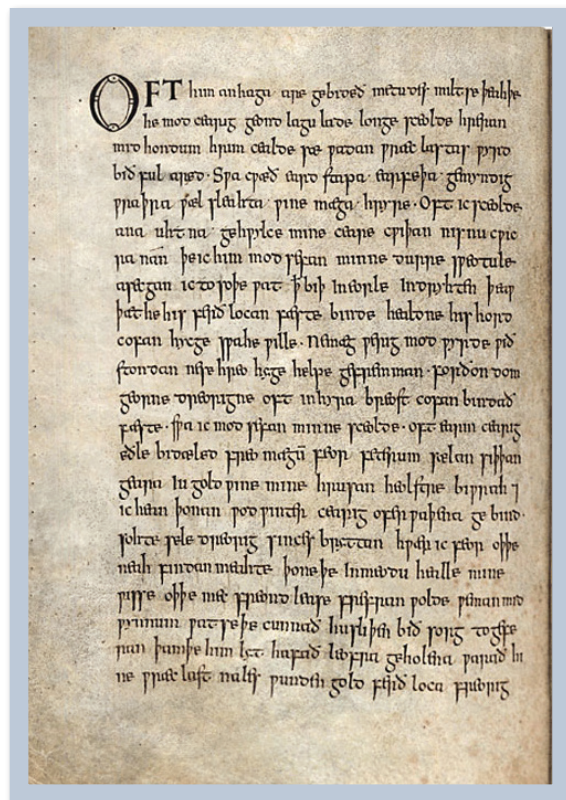 OFT him anhaga are gebideð metudes miltse þeahþe
he mod cearig geond lagu lade longe sceolde hreran
mid hondum hrim cealde sæ ƿadan ƿræc lastas ƿyrd
bið ful aræd· Sƿa cƿæð eard stapa earfeþa· gemyndig
ƿraþra ƿæl sleahta· ƿine mæga· hryre· Oft ic sceolde
ana uhtna· gehƿylce mine ceare cƿiþan nis nu cƿic
ra nan þe ic him mod sefan minne durre sƿeotule
asecgan ic to soþe ƿat ꝥ biþ in eorle indryhten þeaƿ
þæt he his ferð locan fæste binde healdne his hord
cofan hycge sƿa he ƿille· Ne mæg ƿerig mod ƿyrde ƿið
stondan ne se hreo hyge helpe gefremman· fordon dom
georne dreorigne oft in hyra breost cofan bindað
fæste· sƿa ic mod sefan minne sceolde· oft earm cearig
eðle bidæled freo mægū feor feterum sælan siþþan
geara iu gold ƿine mine hrusan heolstre biƿrah ⁊
ic hean þonan ƿod ƿinter cearig ofer ƿaþena ge bind·
sohte sele dreorig sinces bryttan hƿær ic feor oþþe
neah findan meahte þone þe in meodu healle mine
ƿisse oþþe mec freond lease frefran ƿolde ƿeman mid
ƿynnum ƿat se þe cunnað hu sliþen bið sorg to gefe
ran þam þe him lyt hafað leofra geholena ƿarað hi
ne ƿræc last nales ƿunden gold ferð loca freorig